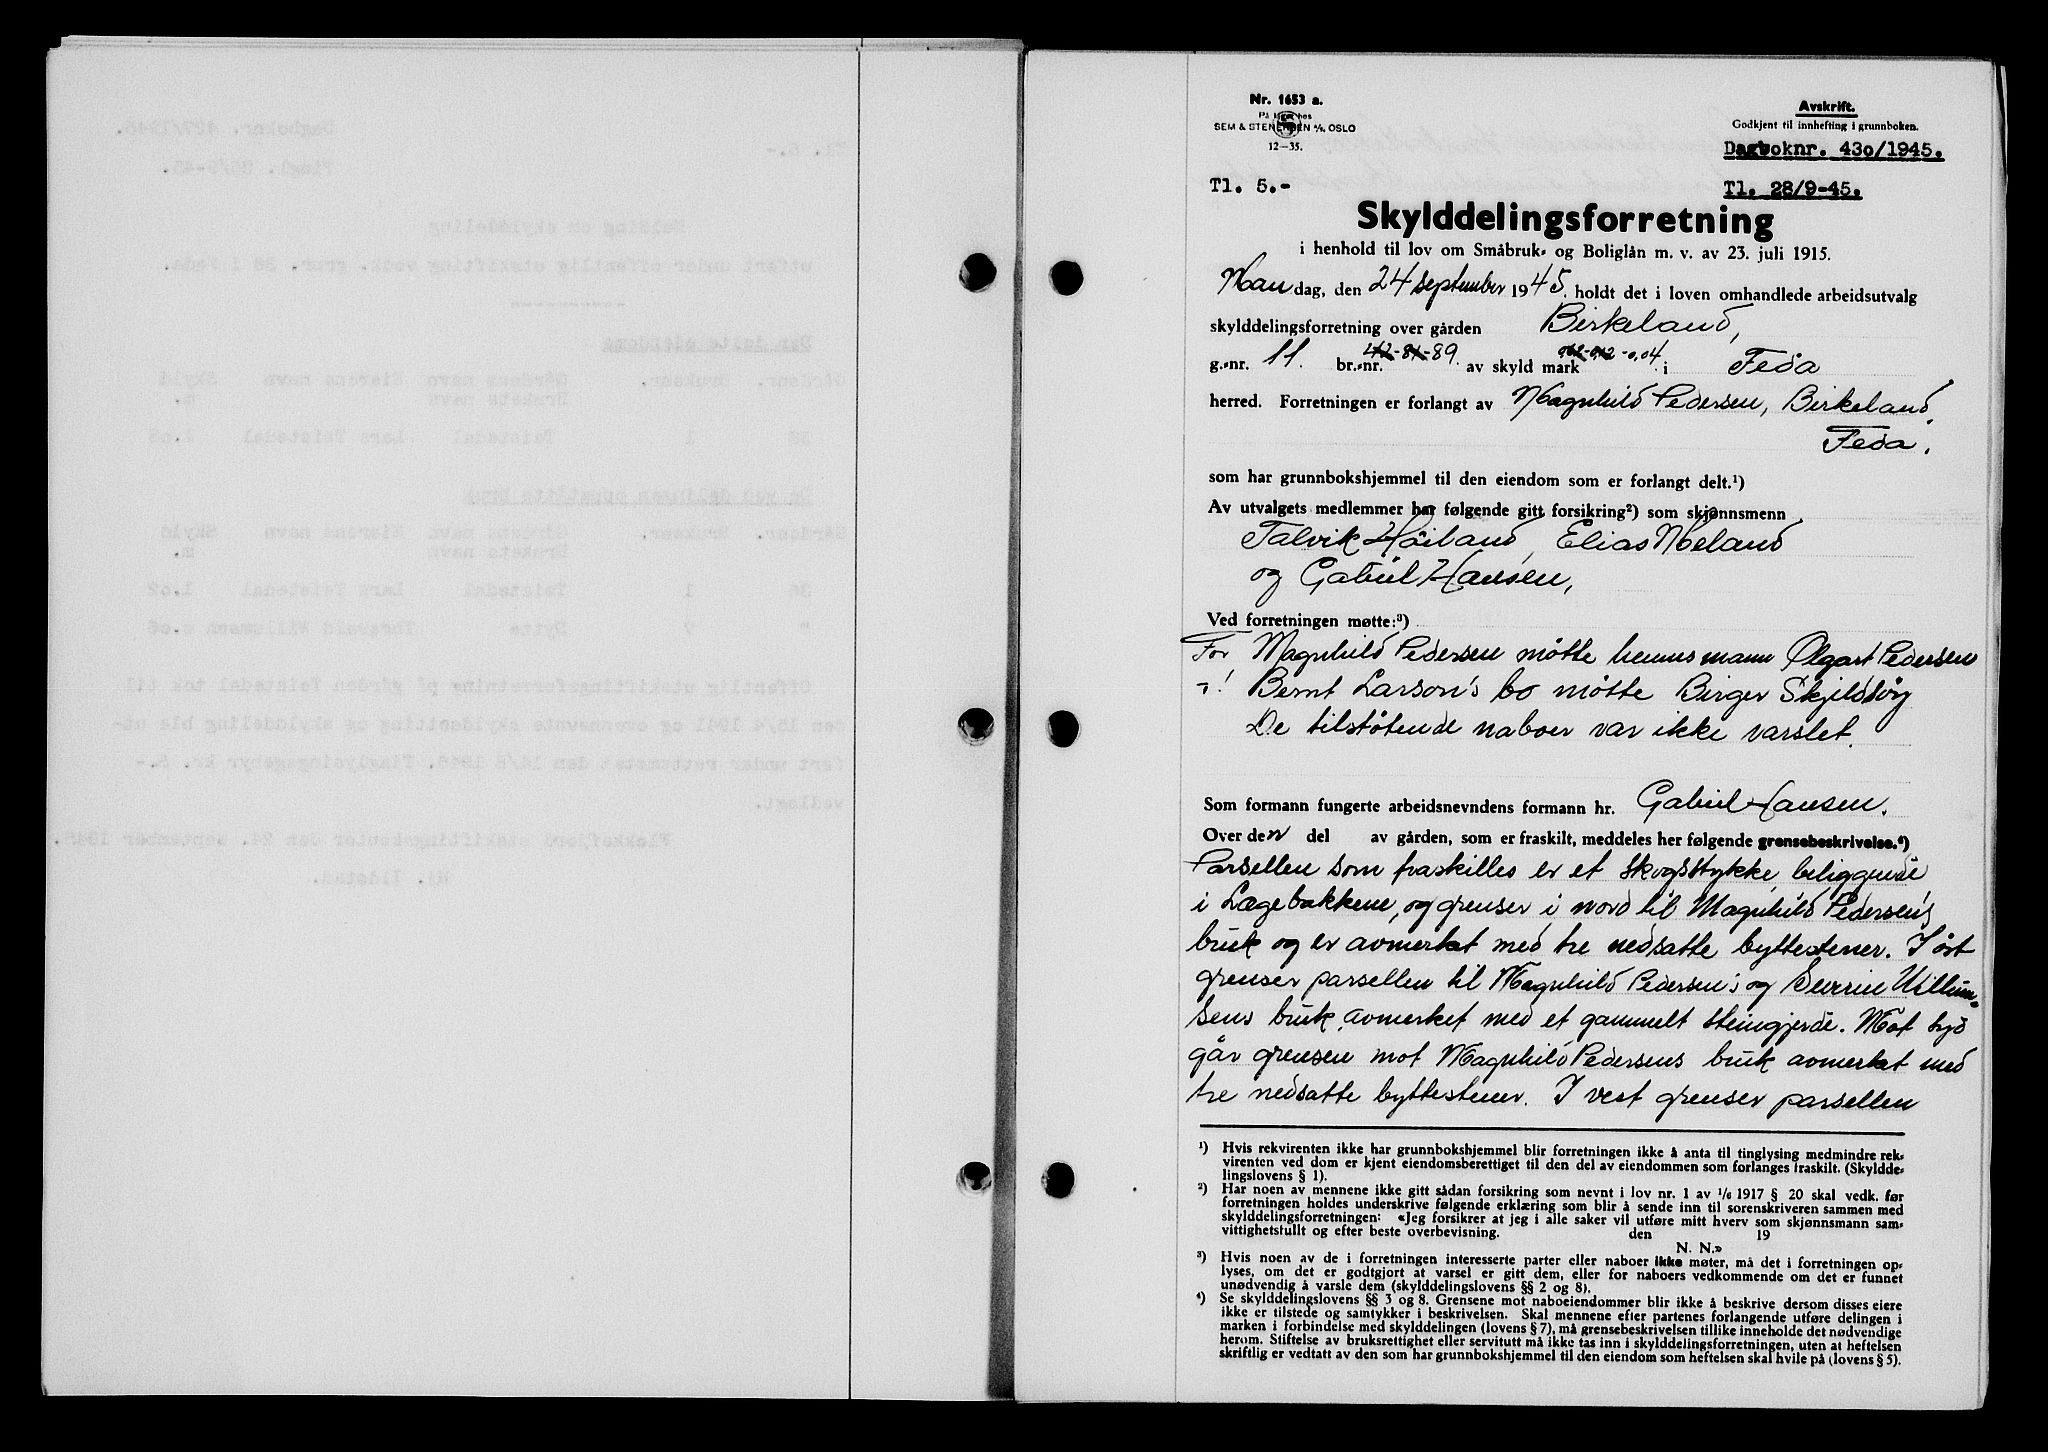 Nr. 1653 a.
På lager hos
SEM & STENERSEN A/S. OSLO
12—35.
Avskrift.
Godkjent til innhefting i grunnboken.
Dagboknr. 430/1945.
Tl. 5.-
Tl. 28/9-45.
Skylddelingsforretning
i henhold til lov om Småbruk- og Boliglån m. v. av 23. juli 1915.
Mandag, den 24 september 1945. holdt det i loven omhandlede arbeidsutvalg
skylddelingsforretning over gården Birkeland,
g.-nr. 11. br.-nr. 89. av skyld mark 0,04 i Feda
herred. Forretningen er forlangt av Magnhild Pedersen, Birkeland,
Feda.
som har grunnbokshjemmel til den eiendom som er forlangt delt.¹)
Av utvalgets medlemmer har følgende gitt forsikring²) som skjønnsmenn
Talvik Høiland, Elias Moland
og Gabriel Hansen,
Ved forretningen møtte:³)
For Magnhild Pedersen møtte hennes mann Olgart Pedersen
Bernt Larson's bo møtte Birger Skjeldsøy
De tilstøtende naboer var ikke varslet.
Som formann fungerte arbeidsnevndens formann hr. Gabriel Hansen.
Over den del av gården, som er fraskilt, meddeles her følgende grensebeskrivelse.⁴)
Parsellen som fraskilles er et skogstykke, beliggende
i Lægebakkene, og grenser i nord til Magnhild Pedersens
bruk og er avmerket med tre nedsatte byttestener. I øst
grenser parsellen til Magnhild Pedersen's og Severin Willum-
sens bruk, avmerket med et gammelt steingjerde. Mot syd
går grensen mot Magnhild Pedersens bruk avmerket med
tre nedsatte byttestener. I vest grenser parsellen
¹) Hvis rekvirenten ikke har grunnbokshjemmel blir forretningen ikke å anta til tinglysing medmindre rek-
virenten ved dom er kjent eiendomsberettiget til den del av eiendommen som forlanges fraskilt. (Skyldde-
lingslovens § 1).
²) Har noen av mennene ikke gitt sådan forsikring som nevnt i lov nr. 1 av 1/6 1917 § 20 skal vedk. før
forretningen holdes underskrive følgende erklæring som blir å sende inn til sorenskriveren sammen med
skylddelingsforretningen: «Jeg forsikrer at jeg i alle saker vil utføre mitt hverv som skjønnsmann sam-
vittighetsfullt og efter beste overbevisning. den 19
N. N.»
³) Hvis noen av de i forretningen interesserte parter eller naboer ikke møter, må det i forretningen op-
lyses, om det er godtgjort at varsel er gitt dem, eller for naboers vedkommende om det er funnet
unødvendig å varsle dem (skylddelingslovens §§ 2 og 8).
⁴) Se skylddelingslovens §§ 3 og 8. Grensene mot naboeiendommer blir ikke å beskrive dersom disses eiere
ikke er tilstede og samtykker i beskrivelsen. Skal mennene efter partenes forlangende utføre delingen i
marken i forbindelse med skylddelingen (lovens § 7), må grensebeskrivelsen tillike inneholde det nødvendige
herom. Stiftelse av bruksrettighet eller servitutt må ikke tas inn i skylddelingsforretningen, uten at heftelsen
skriftlig er vedtatt av den som har grunnbokshjemmel til den eiendom som heftelsen skal hvile på (lovens § 5).